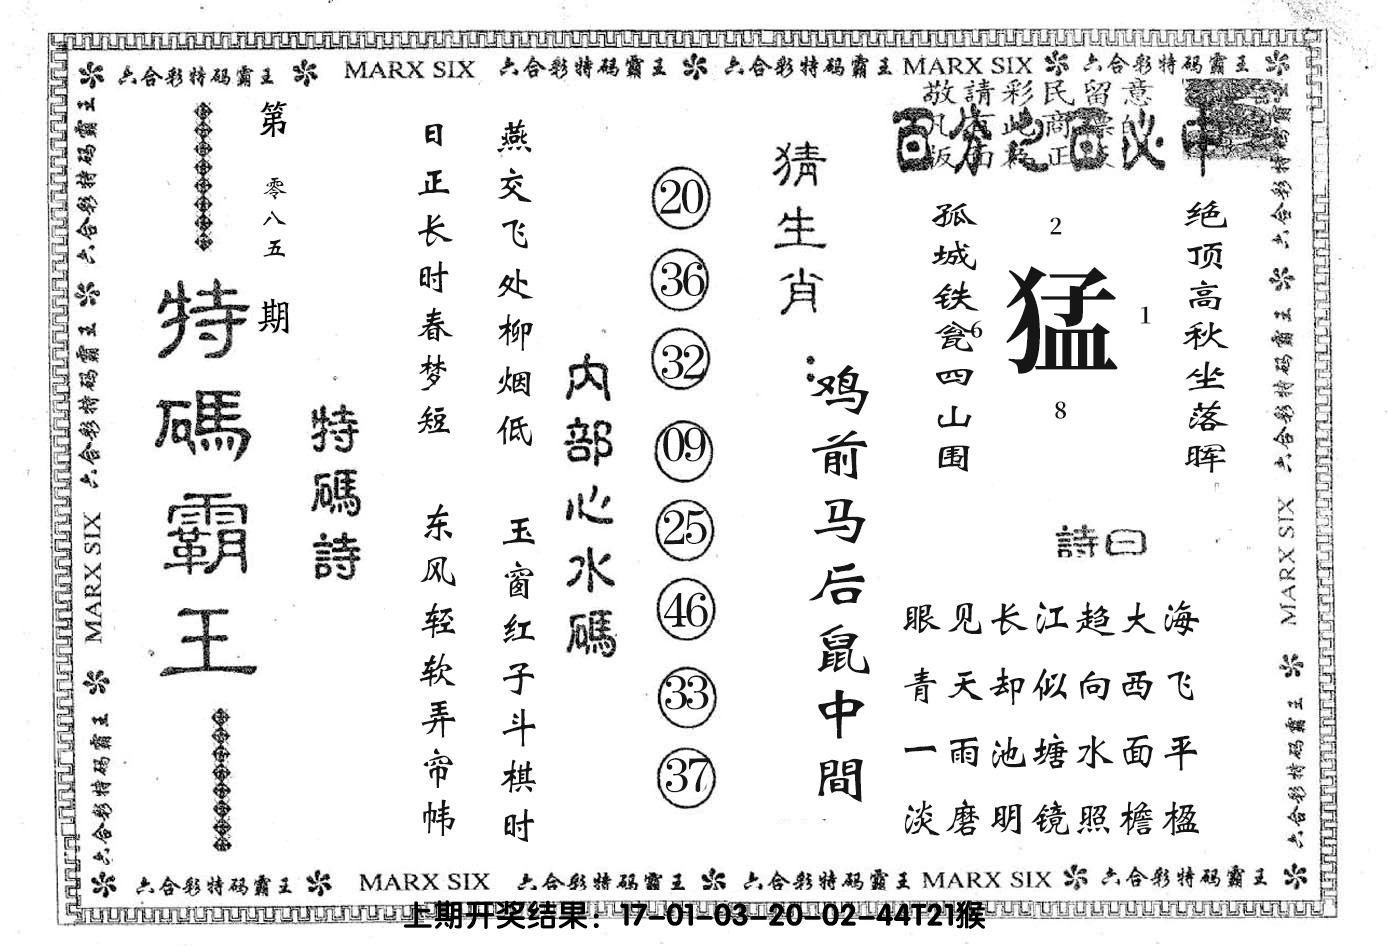 六合彩特码霸王 MARX SIX 六合彩特码霸王 六合彩特码霸王 MARX SIX 六合彩特码霸王
敬請彩民留意
百分之百必中
绝顶高秋坐落晖
2
猛
1
6
8
孤城铁瓮四山围
詩曰
眼见长江趋大海
青天却似向西飞
一雨池塘水面平
淡磨明镜照檐楹
猜生肖：
鸡前马后鼠中間
20
36
32
09
25
46
33
37
内部心水碼
燕交飞处柳烟低
玉窗红子斗棋时
日正长时春梦短
东风轻软弄帘帏
特碼詩
第零八五期
特碼霸王
六合彩特码霸王 六合彩特码霸王 MARX SIX 六合彩特码霸王
六合彩特码霸王 六合彩特码霸王 MARX SIX 六合彩特码霸王
六合彩特码霸王 MARX SIX 六合彩特码霸王 六合彩特码霸王 MARX SIX 六合彩特码霸王
上期开奖结果：17-01-03-20-02-44T21猴